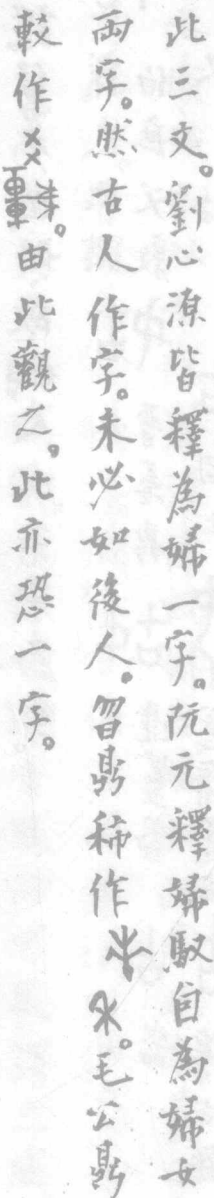 此三文。劉心源皆釋為婦一字。阮元釋婦馭自為婦女
兩字。然古人作字。未必如後人。曶鼎秭作。毛公鼎
較作。由此觀之。此亦恐一字。